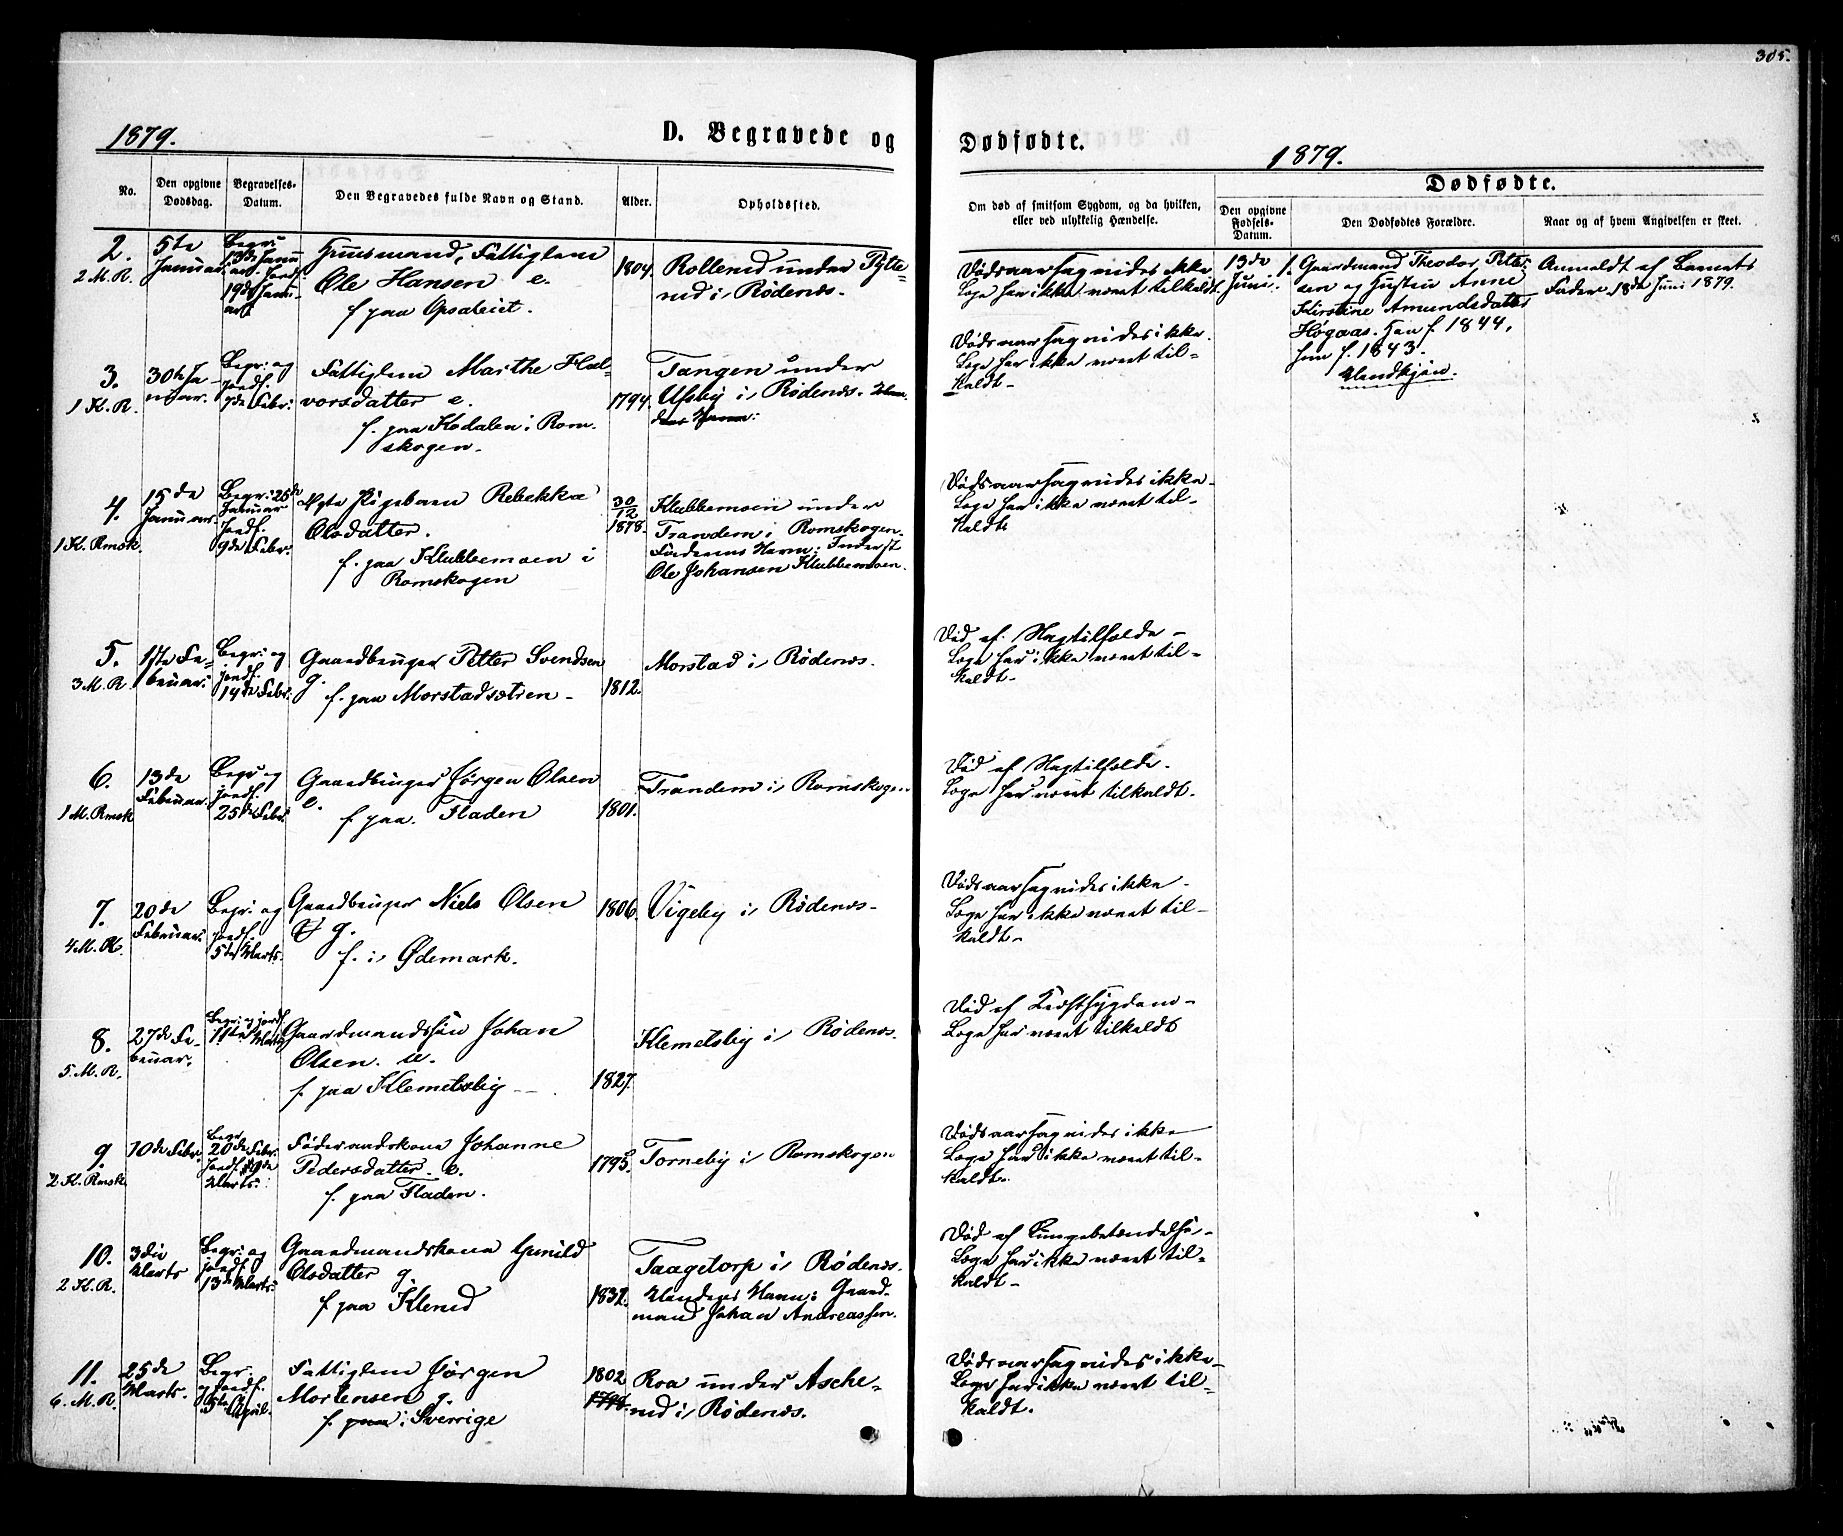 305.
1879.
D. Begravede og
Dødfødte.
1879.
No.
Den opgivne Dødsdag.
Begravelses-Datum.
Den Begravedes fulde Navn og Stand.
Alder.
Opholdssted.
Om død af smitsom Sygdom, og da hvilken, eller ved ulykkelig Hændelse.
Dødfødte.
Den opgivne Fødsels-Datum.
Den Dødfødtes Forældre.
Naar og af hvem Angivelsen er skeet.
2.
2 M. R.
5te
Januar
Begr:
13de Janu
ar. Jordf.
19de Janu
ar
Huusmand, Fattiglem
Ole Hansen e.
f. paa Opsaleiet.
1804.
Rollerud under
i Rødenæs.
Dødsaarsag vides ikke.
Læge har ikke været tilkaldt
13de
Juni.
1.
Gaardmand Theodor Peter
sen og Hustru Anne
Kirstine Amundsdatter
Høgaas. Han f. 1844,
hun f. 1843.
Mandkjøn.
Anmeldt af Barnets
Fader 18de Juni 1879.
3.
1 K. R.
30te Ja-
nuar.
Begr: og
jordf.
7de Febr:
Fattiglem Marthe Hal-
vorsdatter e.
f. paa Kodalen i Rom-
skogen.
1794.
Tangen under
Ulsby i Rødenæs.
Dødsaarsag vides ikke.
Læge har ikke været til-
kaldt-
4.
1 K. Rmsk.
15de
Januar.
Begr: 26de
Januar
Jordf.
9de Febr:
Ægte Pigebarn Rebekka
Olsdatter.
f. paa Klubbemoen i
Romskogen
30/12
1878.
Klubbemoen under
Trandem i Romskogen.
Faderens Navn: Inderst
Ole Johansen Klubbemoen.
Dødsaarsag vides ikke-
Læge har ikke været til-
kaldt
5.
3 M. R.
1ste Fe-
bruar.
Begr: og
jordf.
14de Febr:
Gaardbruger Petter Svendsen
g.
f. paa Morstadsætren-
1812.
Morstad i Rødenæs.
Død af Slagtilfælde-
Læge har ikke været til-
kaldt-
6.
1 M. Rmsk
13de
Februar.
Begr: og
jordf.
25de Febr:
Gaardbruger Jørgen Olsen
e.
f. paa Fladen
1801.
Trandem i Romskogen
Død af Slagtilfælde.
Læge har været tilkaldt.
7.
4 M. R.
20de
Februar.
Begr: og
jordf.
5te Marts.
Gaardbruger Niels Olsen
g.
f. i Ødemark.
1806.
Vigeby i Rødenæs-
Dødsaarsag vides ikke-
Læge har ikke været til-
kaldt-
8.
5. M. R.
27de Fe-
bruar.
Begr: og jordf.
11te Marts
Gaardmandssøn Johan
Olsen. u.
f. paa Klemetsby-
1827.
Klemetsby i Rødenæs.
Død af Brystsygdom-
Læge har været tilkaldt
9.
2 K. Rmsk.
10de Febr.
Begr.
20de Febr.
Jordf.
Marts:
Føderaadskone Johanne
Pedersdatter. e.
f. paa Fladen.
1795.
Torneby i Romskogen
Dødsaarsag vides ikke
Læge har ikke været til-
kaldt.
10.
2 K. R.
3die
Marts
Begr: og
jordf.
13de Marts:
Gaardmandskone Gunild
Olsdatter g.
f. paa Klerud
1832.
Taagetorp i Rødenæs.
Mandens Navn: Gaard-
mand Johan Andreassen.
Død af Lungebetændelse-
Læge har ikke været til-
kaldt-
11.
6. M. R.
25de
Marts.
Begr:
og jordf.
5te April.
Fattiglem Jørgen
Mortensen g.
f. paa i Sverrige
1802
1796.
Roa under Asche-
rud i Rødenæs.
Dødsaarsag vides ikke-
Læge har ikke været til-
kaldt.